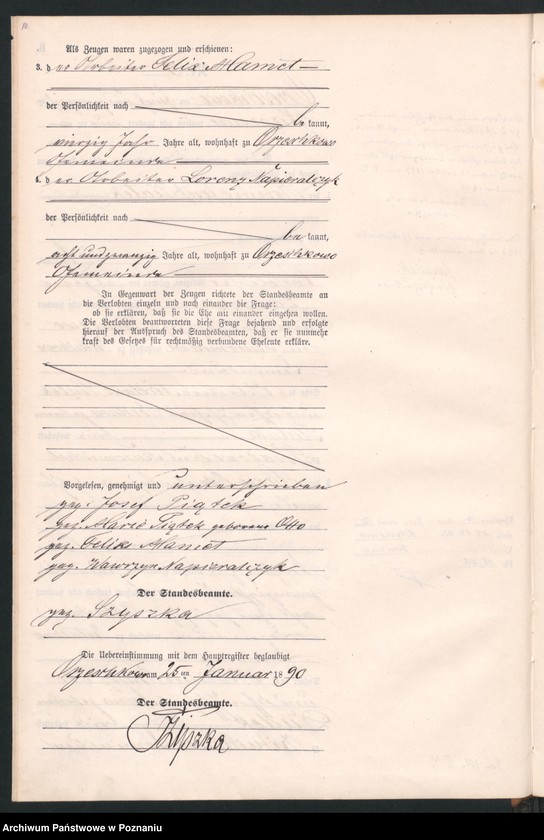 Als Zeugen waren zugezogen und erschienen:
3. der Arbeiter Felix Mamet
der Persönlichkeit nach
bekannt,
vierzig Jahr Jahre alt, wohnhaft zu Orzeschkowo
Gemeinde
4. der Arbeiter Lorenz Napieralczyk
der Persönlichkeit nach
bekannt,
acht und zwanzig Jahre alt, wohnhaft zu Orzeschkowo
Gemeinde
In Gegenwart der Zeugen richtete der Standesbeamte an
die Verlobten einzeln und nach einander die Frage:
ob sie erklären, daß sie die Ehe mit einander eingehen wollen.
Die Verlobten beantworteten diese Frage bejahend und erfolgte
hierauf der Ausspruch des Standesbeamten, daß er sie nunmehr
kraft des Gesetzes für rechtmäßig verbundene Eheleute erkläre.
Vorgelesen, genehmigt und unterschrieben
gez. Josef Piątek
gez. Marie Piątek geborene Otto
gez. Feliks Mamet
gez. Wawrzyn Napieralczyk
Der Standesbeamte.
gez. Szyszka
Die Uebereinstimmung mit dem Hauptregister beglaubigt
Orzeschkowo am 25 ten Januar 1890
Der Standesbeamte.
Szyszka
Archiwum Państwowe w Poznaniu